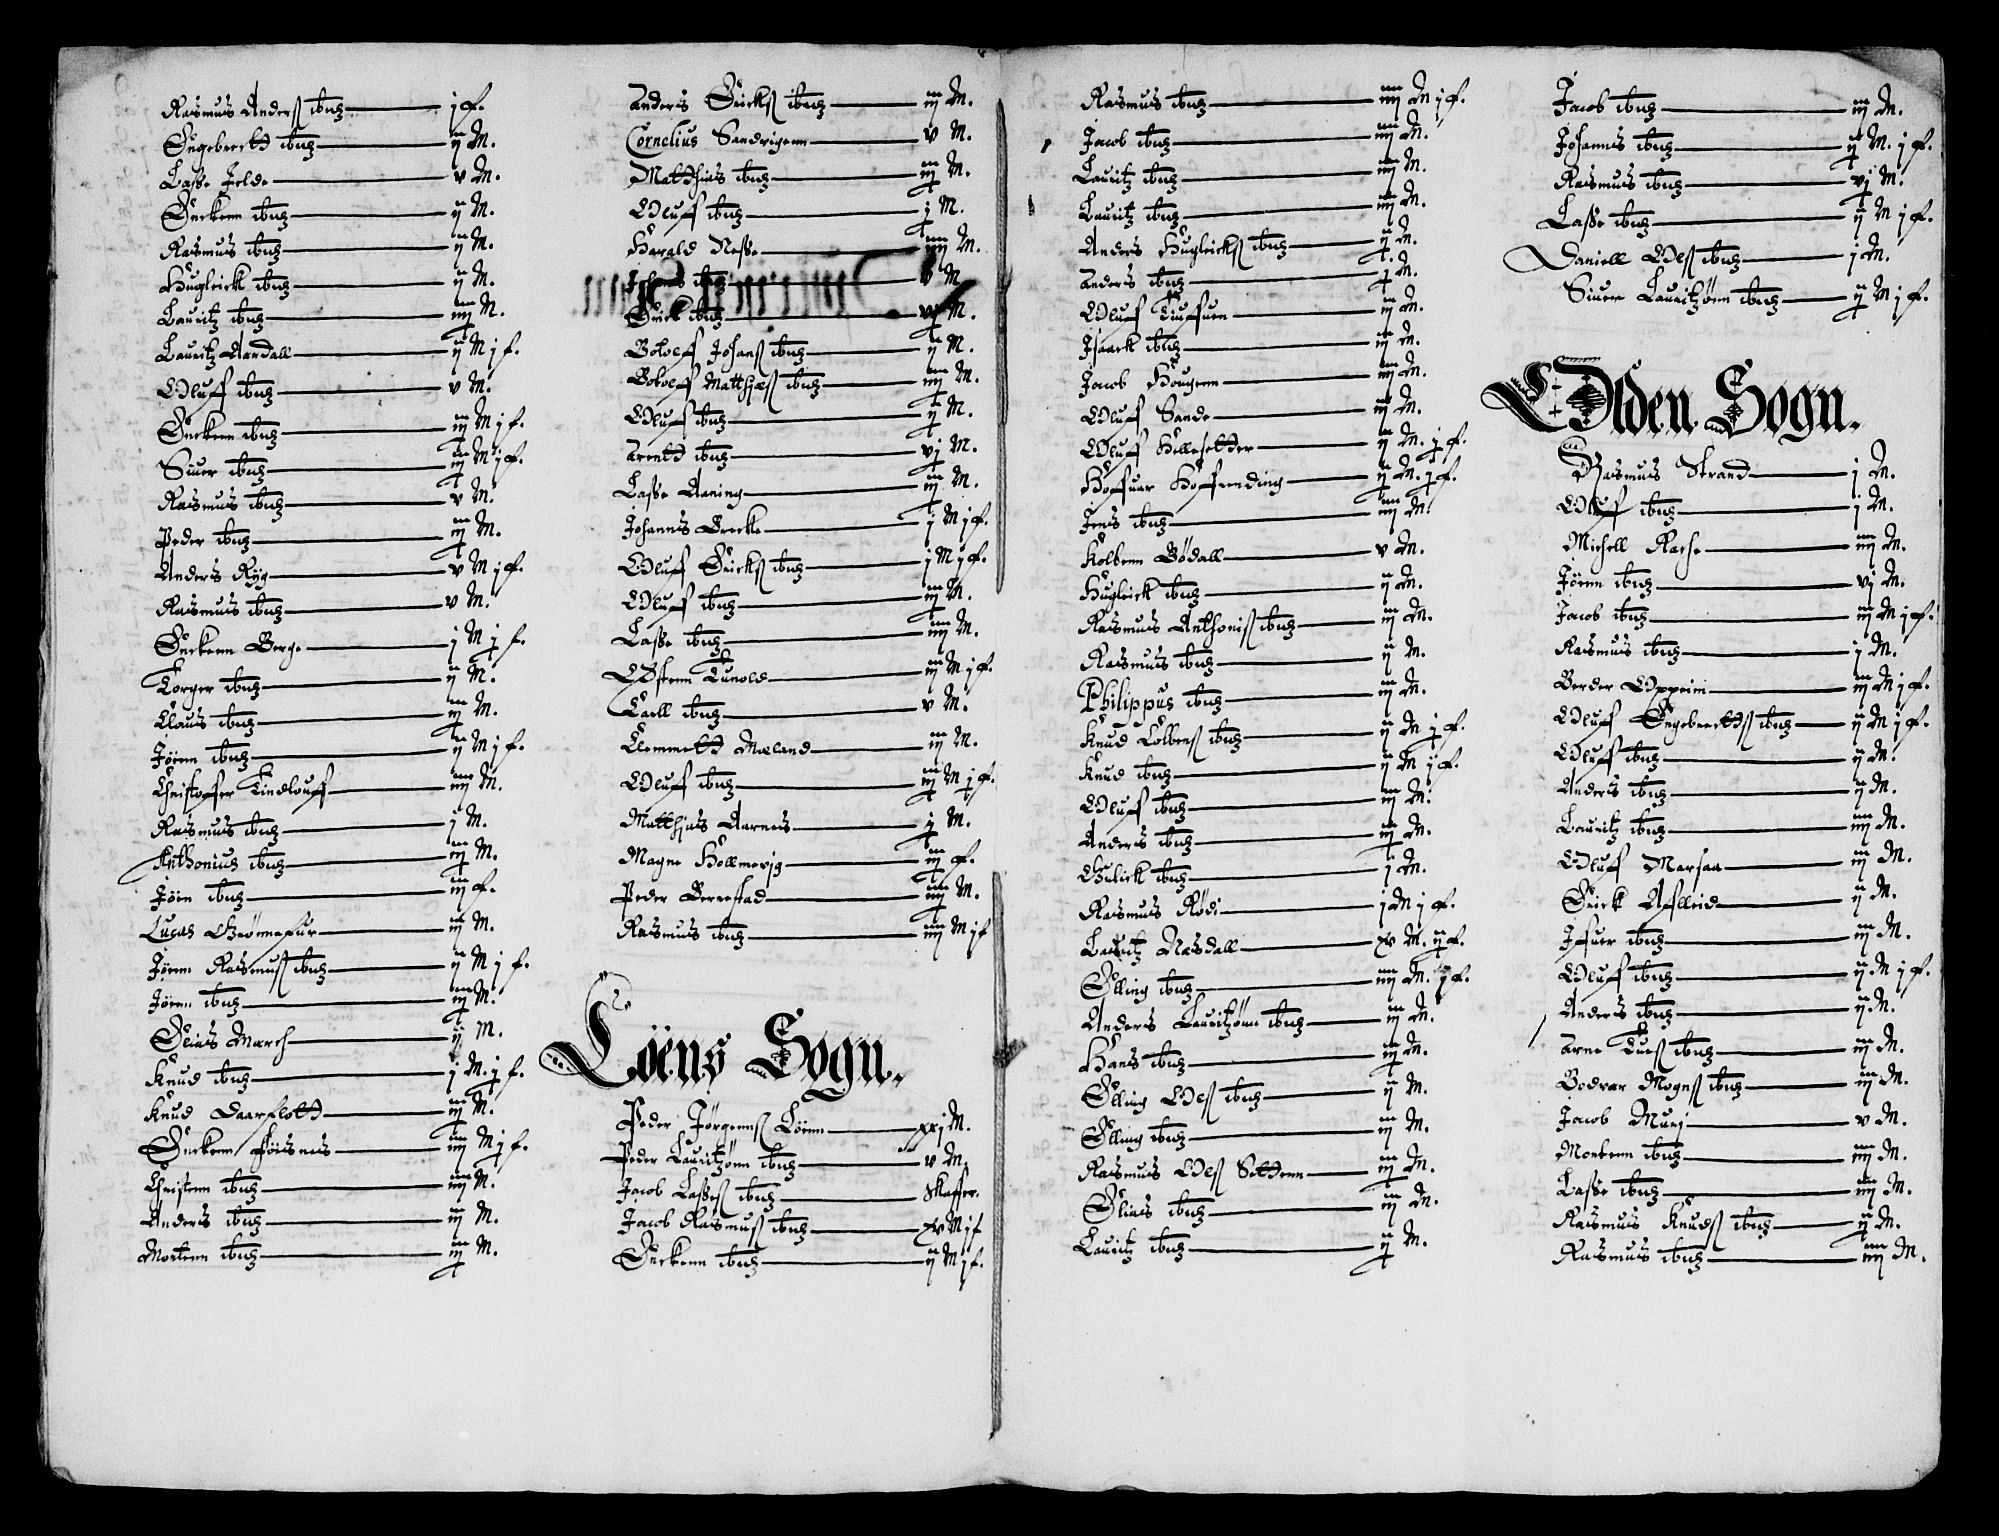 Rasmus Anderß ibid j f.
Engebrect ibid ij M.
Laße Jelde v M.
Enckenn ibid ij M.
Rasmus ibid ij M.
Hugleick ibid ij M.
Lauritz ibid iiij M.
Lauritz Aardall ij M j f.
Oluff ibid v M.
Enckenn ibid iij M j f.
Siuer ibid iij M j f.
Rasmus ibid v M.
Peder ibid iij M.
Anders Ryg v M j f.
Rasmus ibid v M.
Enckenn Berge j M j f.
Torger ibid ij M.
Claus ibid iij M.
Jørenn ibid ij M j f.
Christoffer Tindlouff iiij M.
Rasmus ibid j M.
Anthonius ibid iij M.
Jørn ibid iij f.
Lucas Grønnefur iij M.
Jørenn Rasmuß ibid ij M j f.
Jørenn ibid iij M.
Elias March ij M.
Knud ibid j M. j f.
Knud Daarflott iij M.
Enckenn iiij M j f.
Christenn ibid iiij M.
Anders ibid iij M.
Mortenn ibid iij M.
Anders Erickß ibid iij M.
Cornelius Sandvigenn v M.
Matthias ibid iij M.
Oluff ibid j M.
Harald Neße iiij M.
Johans ibid v M
Erick ibid vj M.
Botolff Johanß ibid ij M.
Botolff Matthiæß ibid iiij M.
Oluff ibid ij M.
Arentt ibid vj M.
Laße Aaning iij M.
Johannis Breche j M j f.
Oluff Erickß ibid j M j f.
Oluff ibid iij M.
Laße ibid iiij M.
Østenn Tunold iij M j f.
Carll ibid v M.
Clemmett Mæland iij M.
Oluff ibid iij M j f.
Matthias Aarnes j M.
Magne Hollmevig iij f.
Peder Bernestad iiij M.
Rasmus ibid iiij M j f
Löens Sogn.
Peder Jørgennß Löenn xxj M.
Peder Lauritzønn ibid v M.
Jacob Laßeß ibid Skaffer.
Jacob Rasmuß ibid xv M j f
Enckenn ibid ij M j f.
Rasmus ibid iiij M j f.
Jacob ibid iiij M.
Lauritz ibid iiij M.
Lauritz ibid iiij M.
Anders Hugleickß ibid ij M.
Anders ibid j M.
Oluff Tiuffuen iij M.
Isaack ibid iij M.
Jacob Hougenn iiij M.
Oluff Sande iij M.
Oluff Hellesetter ij M. j f.
Hoffuar Hoffrending ij M. j f.
Jens ibid iiij M
Kolbenn Bödall v M.
Hugleick ibid ij M.
Rasmus Anthoniß ibid iij M.
Rasmus ibid ij M.
Philippus ibid iij M.
Knud Colbenß ibid ij M j f.
Knud ibid ij M j f.
Oluff ibid iij M.
Anders ibid iij M.
Gulick ibid j M.
Rasmus Rödi j M j f.
Lauritz Næsdall xv M. ij f.
Elling ibid iiij M. j f.
Anders Lauritzønn ibid iij M.
Hans ibid iij M.
Elling Olß ibid ij M.
Elling ibid iij M.
Rasmus Olß Settenn iij M.
Elias ibid iij M.
Lauritz ibid ij M.
Jacob ibid iij M.
Johannis ibid ij M. j f.
Rasmus ibid vj M.
Laße ibid ij M j f.
Daniell Olß ibid j M.
Siuer Lauritzønn ibid ij M j f.
Olden Sogn.
Rasmus Strand j M.
Oluff ibid j M.
Michell Rache iiij M.
Jörenn ibid vj M.
Jacob ibid iij M j f.
Rasmus ibid j M.
Berder Oppeim iij M j f.
Oluff Engebrectß ibid ij M j f.
Oluff ibid ij M.
Anders ibid ij M.
Lauritz ibid iiij M.
Oluff Marsaa iij M.
Erick Afleid ij M.
Ifuer ibid iij M.
Oluff ibid ij M j f.
Anders ibid ij M.
Arne Tueß ibid iij M.
Bodvar Mogenß ibid iij M.
Jacob Muri v M.
Mortenn ibid iiij M.
Laße ibid iiij M.
Rasmus Knudß ibid ij M.
Rasmus ibid iiij M.